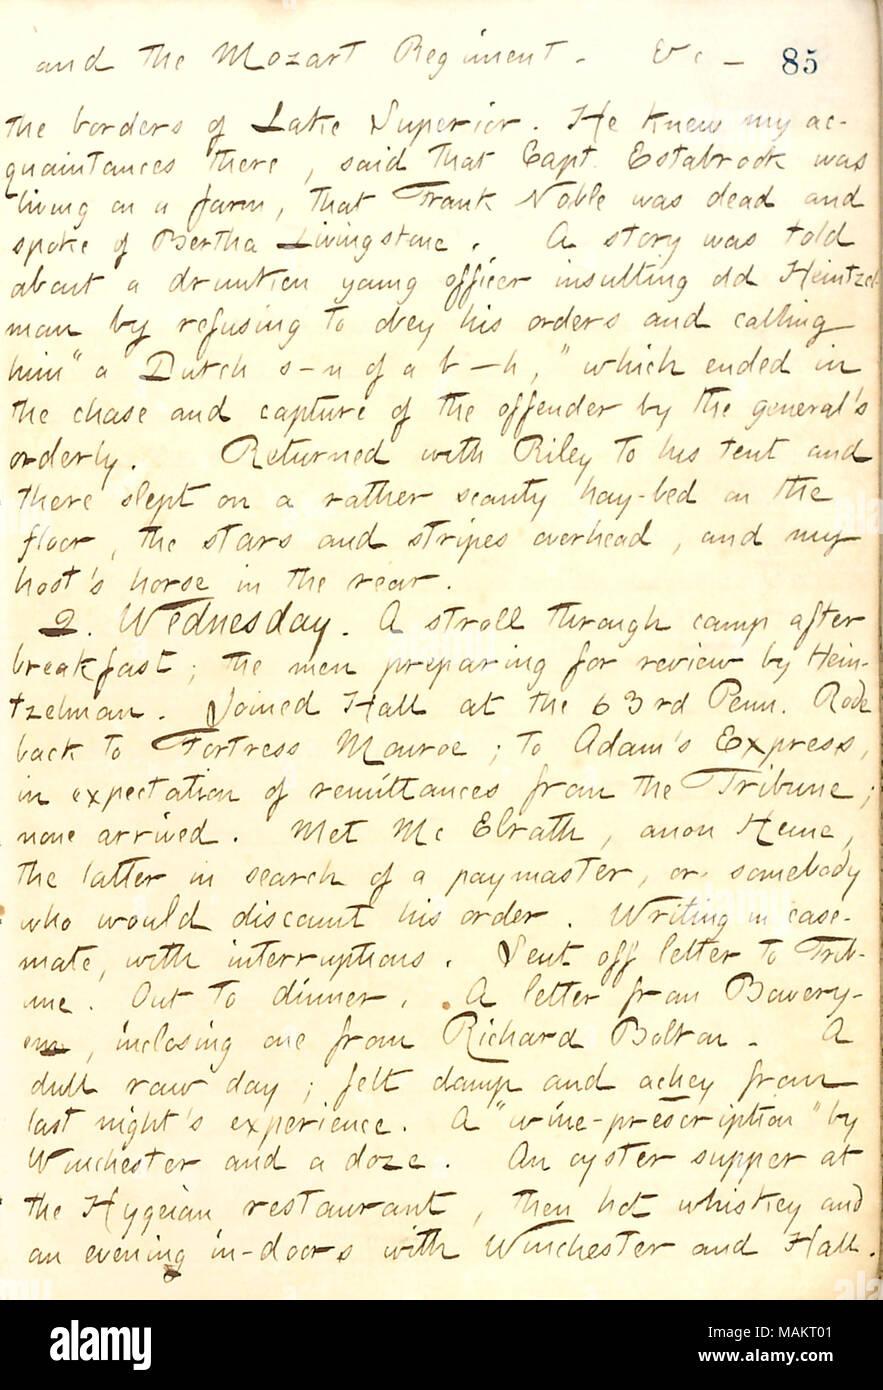 and the Mozart Regiment. &c — 85
the borders of Lake Superior. He knew my ac-
quaintances there, said that Capt. Estabrook was
living on a farm, that Frank Noble was dead and
spoke of Bertha Livingstone. A story was told
about a drunken young officer insulting old Heintzel-
man by refusing to obey his orders and calling
him "a Dutch s–n of a b–h," which ended in
the chase and capture of the offender by the general's
orderly. Returned with Riley to his tent and
there slept on a rather scanty hay-bed on the
floor, the stars and stripes overhead, and my
host's horse in the rear.
2. Wednesday. A stroll through camp after
breakfast; the men preparing for review by Hein-
tzelman. Joined Hall at the 63rd Penn. Rode
back to Fortress Monroe; to Adam's Express,
in expectation of remittances from the Tribune;
none arrived. Met Mc Elrath, anon Heine,
the latter in search of a paymaster, or somebody
who would discount his order. Writing in case-
mate, with interruptions. Sent off letter to Trib-
une. Out to dinner. A letter from Bowery-
em, inclosing one from Richard Bolton. A
dull raw day; felt damp and achey from
last night's experience. A "wine-prescription" by
Winchester and a doze. An oyster supper at
the Hygeian restaurant, then hot whiskey and
an evening in-doors with Winchester and Hall.
alamy
Image ID: MAKT01
www.alamy.com